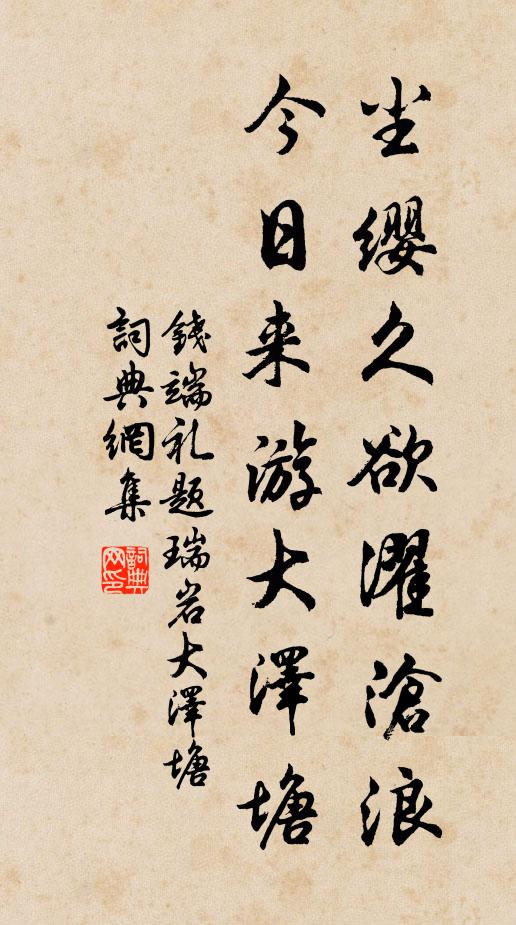 尘缨久欲濯滄浪
今日来游大澤塘
錢端礼题瑞岩大澤塘
詞典網集
詞典网印